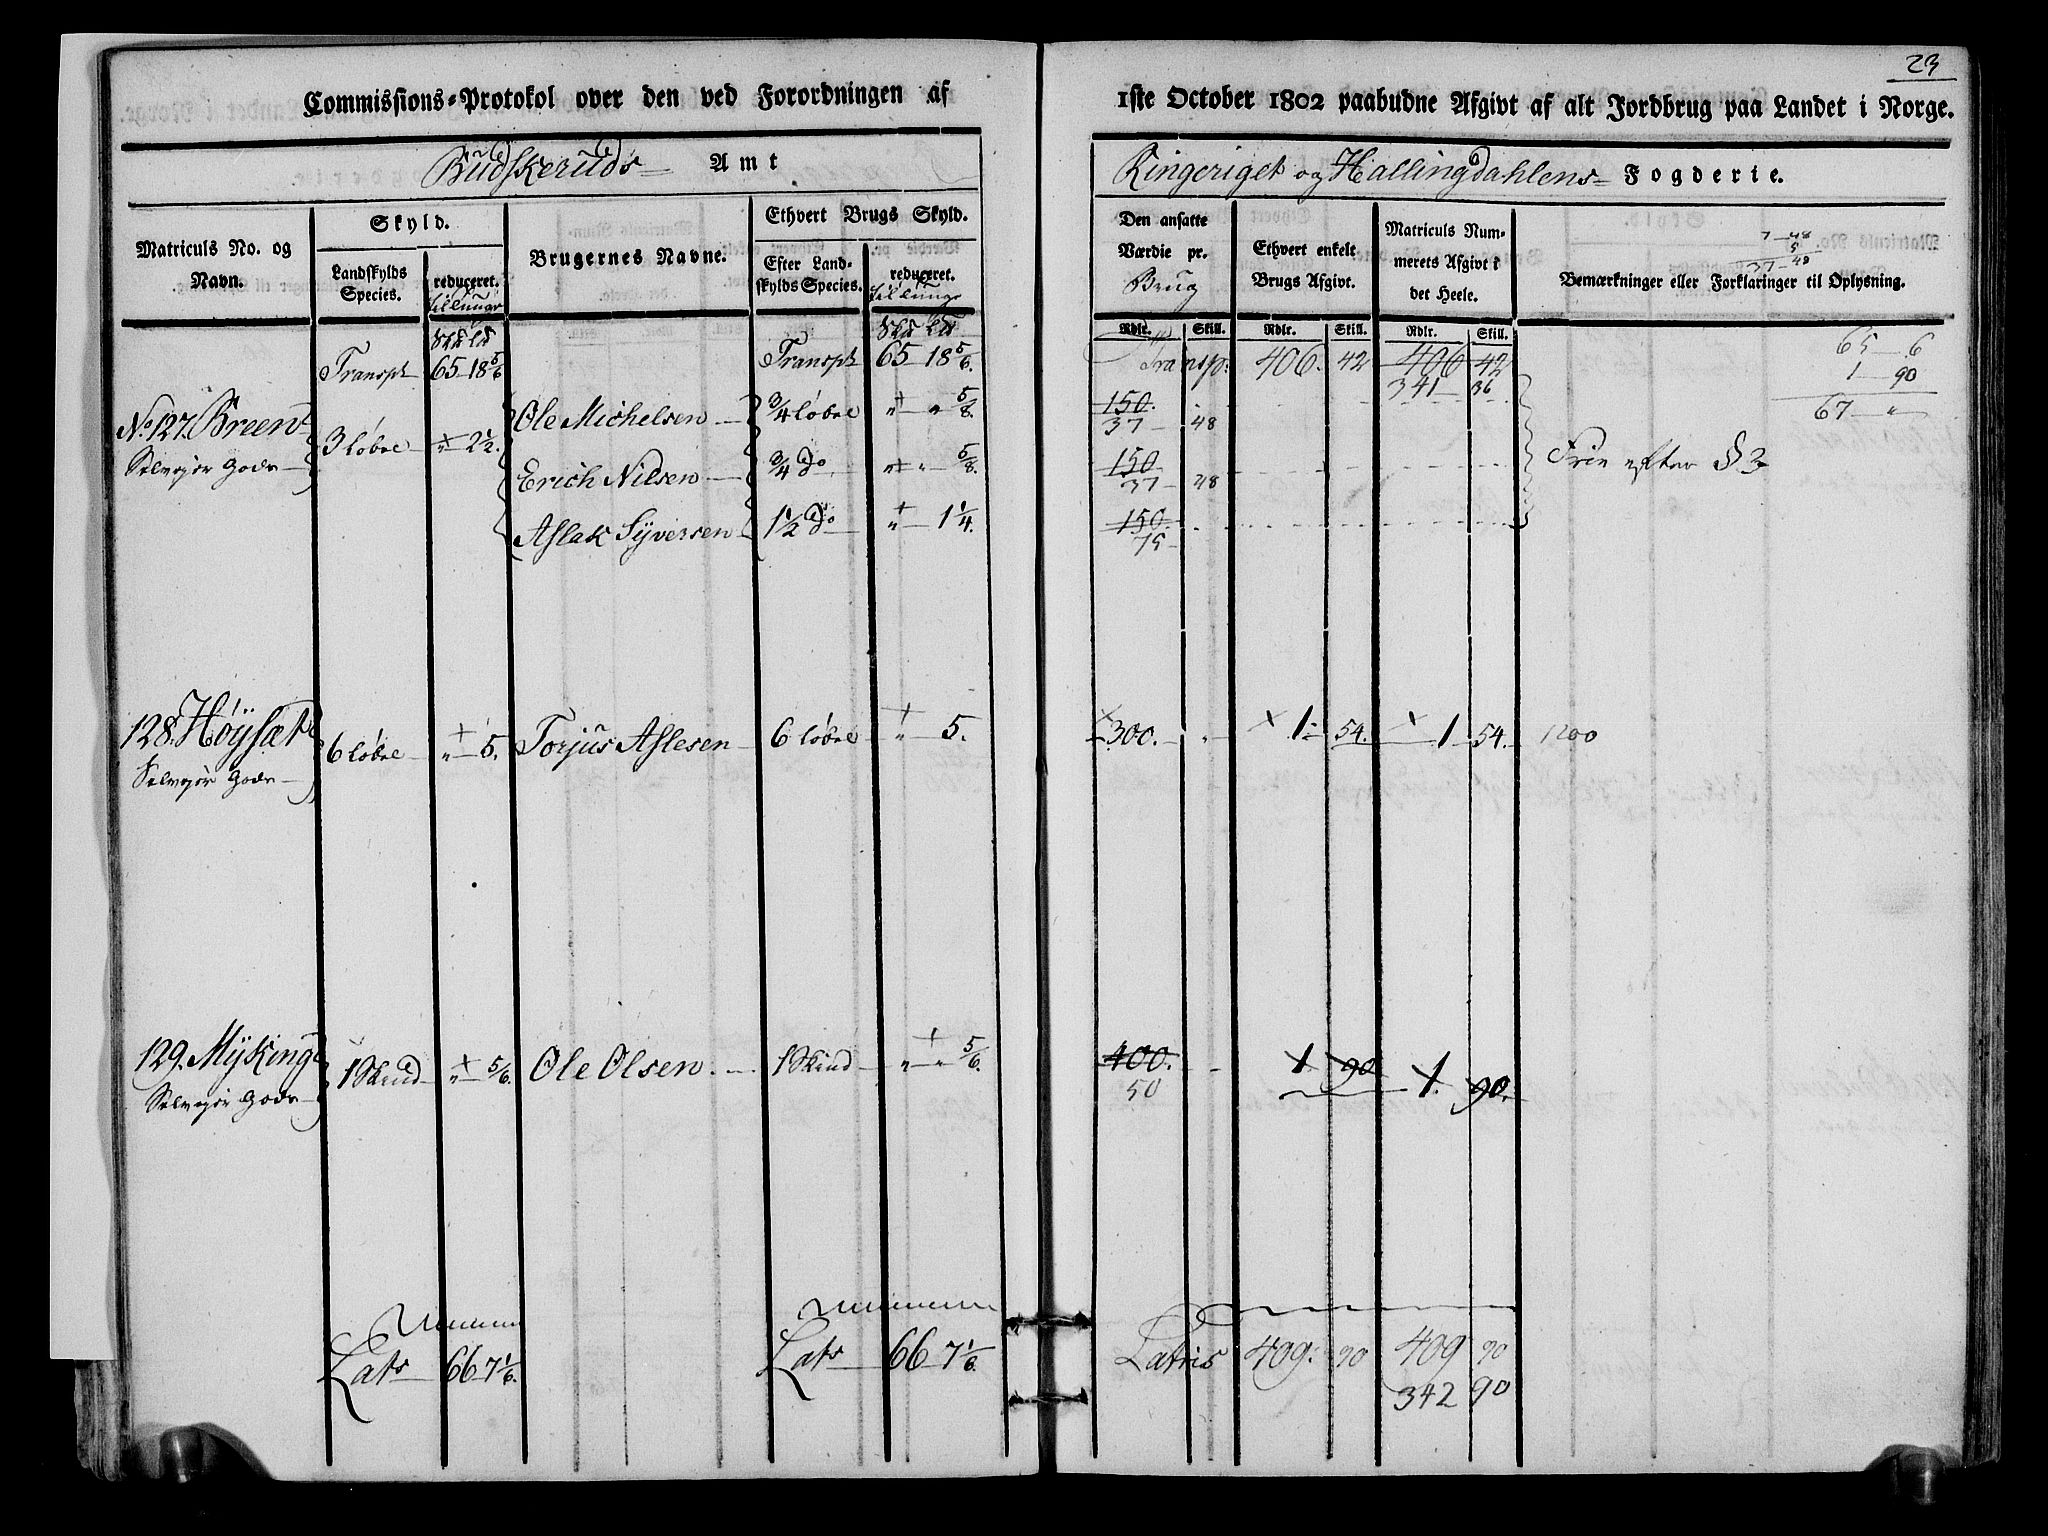 23
Commissions-Protokol over den ved Forordningen af 1ste October 1802 paabudne Afgivt af alt Jordbrug paa Landet i Norge.
Budskeruds Amt
Ringeriget og Hallingdahlens Fogderie.
Matriculs No. og Navn.
Skyld.
Landskylds Species.
reduceret.
Brugernes Navne.
Ethvert Brugs Skyld.
Efter Landskylds Species.
reduceret.
Den ansatte Værdie pr. Brug
Ethvert enkelt Brugs Afgivt.
Matriculs Nummerets Afgivt i det Heele.
Bemærkninger eller Forklaringer til Oplysning.
7 48
5
37 48
Rdlr. Skill. Rdlr. Skill. Rdlr. Skill.
Transpt 65 18 5/6 Transpt 65 18 5/6. Transp: 406. 42 406 42
341 36
65 6
1 90
67 "
No 127. Breen 3 løbe " 2 1/2. Ole Michelsen 3/4 løbe " " 5/8. 150.
Selvejer Gods 37 48
Erich Nilsen 3/4 Do " " 5/8. 150 Frie efter § 3
37 48
Aslak Syversen 1 1/2 Do " 1 1/4. 150.
75
128. Höysæt 6 løbe " 5. Torjus Aslesen 6 løbe " 5. 300. " 1 54. 1 54. 1200
Selvejer Gods
129. Myking 1 Skind " 5/6. Ole Olsen. 1 Skind " " 5/6. 400. 1. 90 1. 90.
Selvejer Gods 50
Lats 66 7 1/6. Lats 66 7 1/6. Latris 409. 90 409 90
342 90